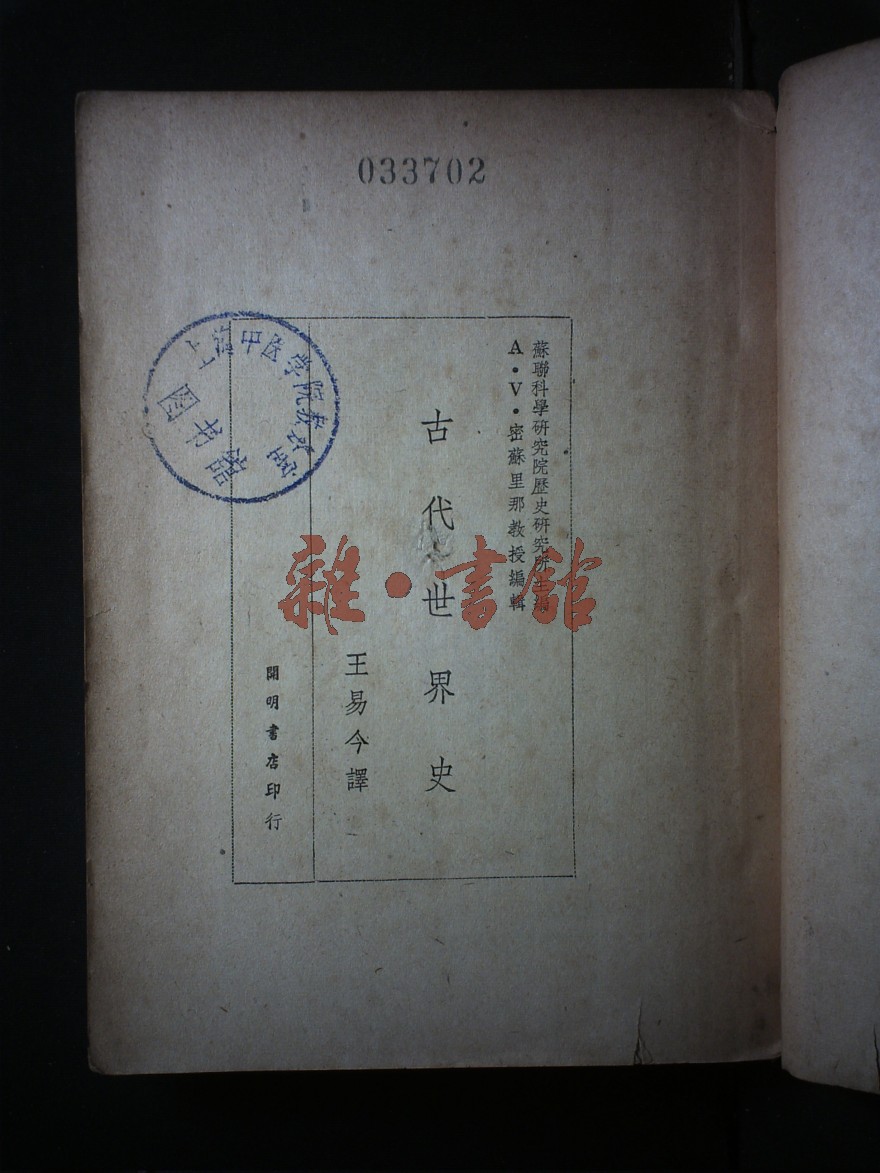 033702
蘇聯科學研究院歷史研究所主編
A·V·密蘇里那教授編輯
古代世界史
王易今譯
開明書店印行
上海中医学院教研室
图书馆
雜·書館